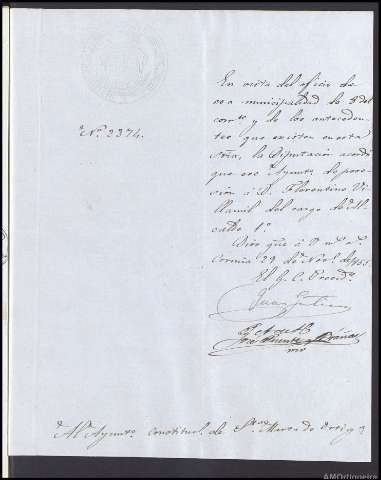 En vista del oficio de
esa municipalidad de 8 del
corrte. y de los anteceden-
tes que existen en esta
Sría, la Diputación acordó
que ese Aynto. de pose-
sion á D. Florentino Vi-
llamil del cargo de Al-
calde 1º
Nº. 2374.
Dios gue á V ms. as.
Coruña 29 de Nov. de 1855.
El G. C. Presid.
Juan
P. A. de la D.
José Puente y Brañas
Al Aynto. constitucl. de Sta. Marta de Ortiga
AMOrtigueira